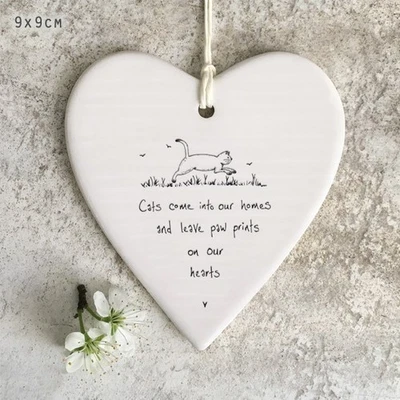 9x9cm
Cats come into our homes
and leave paw prints
on our
hearts